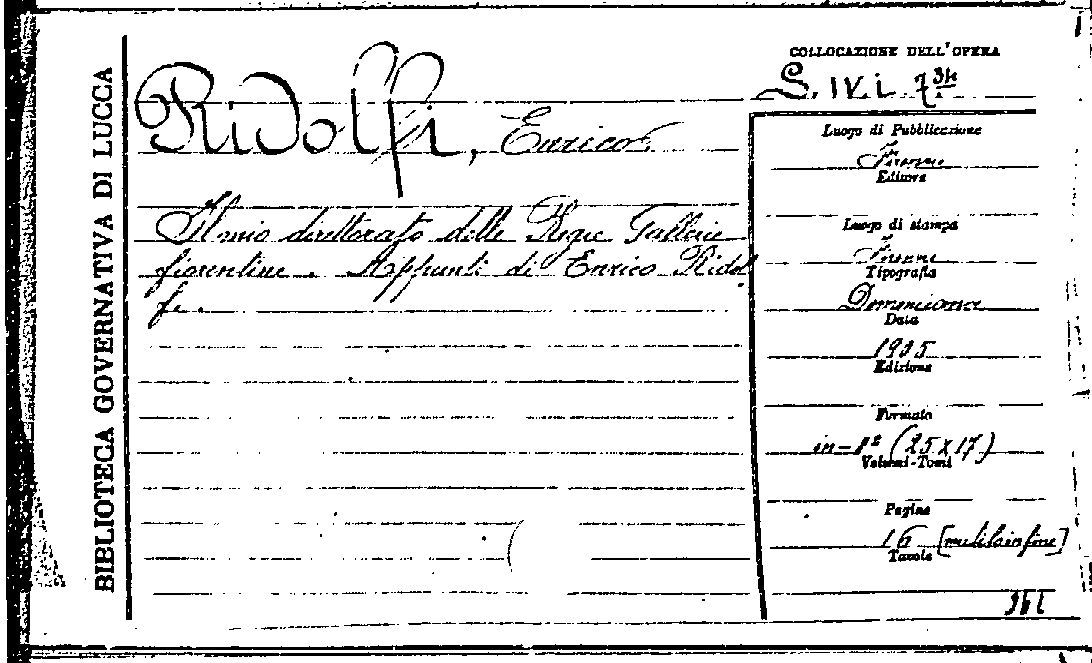 BIBLIOTECA GOVERNATIVA DI LUCCA
Ridolfi, Enrico
Il mio direttorato delle Regie Gallerie
fiorentine. Appunti di Enrico Ridol
fi.
COLLOCAZIONE DELL'OPERA
S. IV. i. 7
Luogo di Pubblicazione
Firenze
Editore
Luogo di stampa
Firenze
Tipografia
Domenicana
Data
1905
Edizione
Formato
in-8º (25 x 17)
Volumi-Tomi
Pagine
16 [mutilo in fine]
Tavole